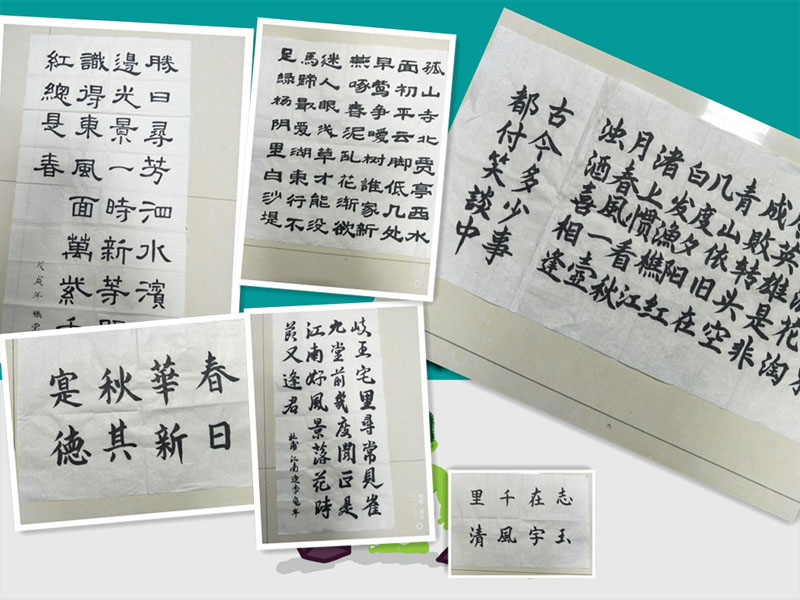 勝日尋芳泗水濱
邊光景一時新等
識得東風面萬紫千
紅總是春
孤山寺北贾亭西水
面初平云脚低几处
早莺争暖树誰家新
燕啄春泥乱花渐欲
迷人眼浅草才能没
馬蹄最爱湖東行不
足绿杨阴里白沙堤
花淘
英雄是非
成败转头空
青山依旧在
几度夕阳红
白发漁樵江
渚上惯看秋
月春風一壶
浊酒喜相逢
古今多少事
都付笑談中
春華秋寔
日新其德
岐王宅里尋常見崔
九堂前幾度聞正是
江南好風景落花時
節又逢君
杜甫 江南逢李龜年
志在千里
玉宇清風